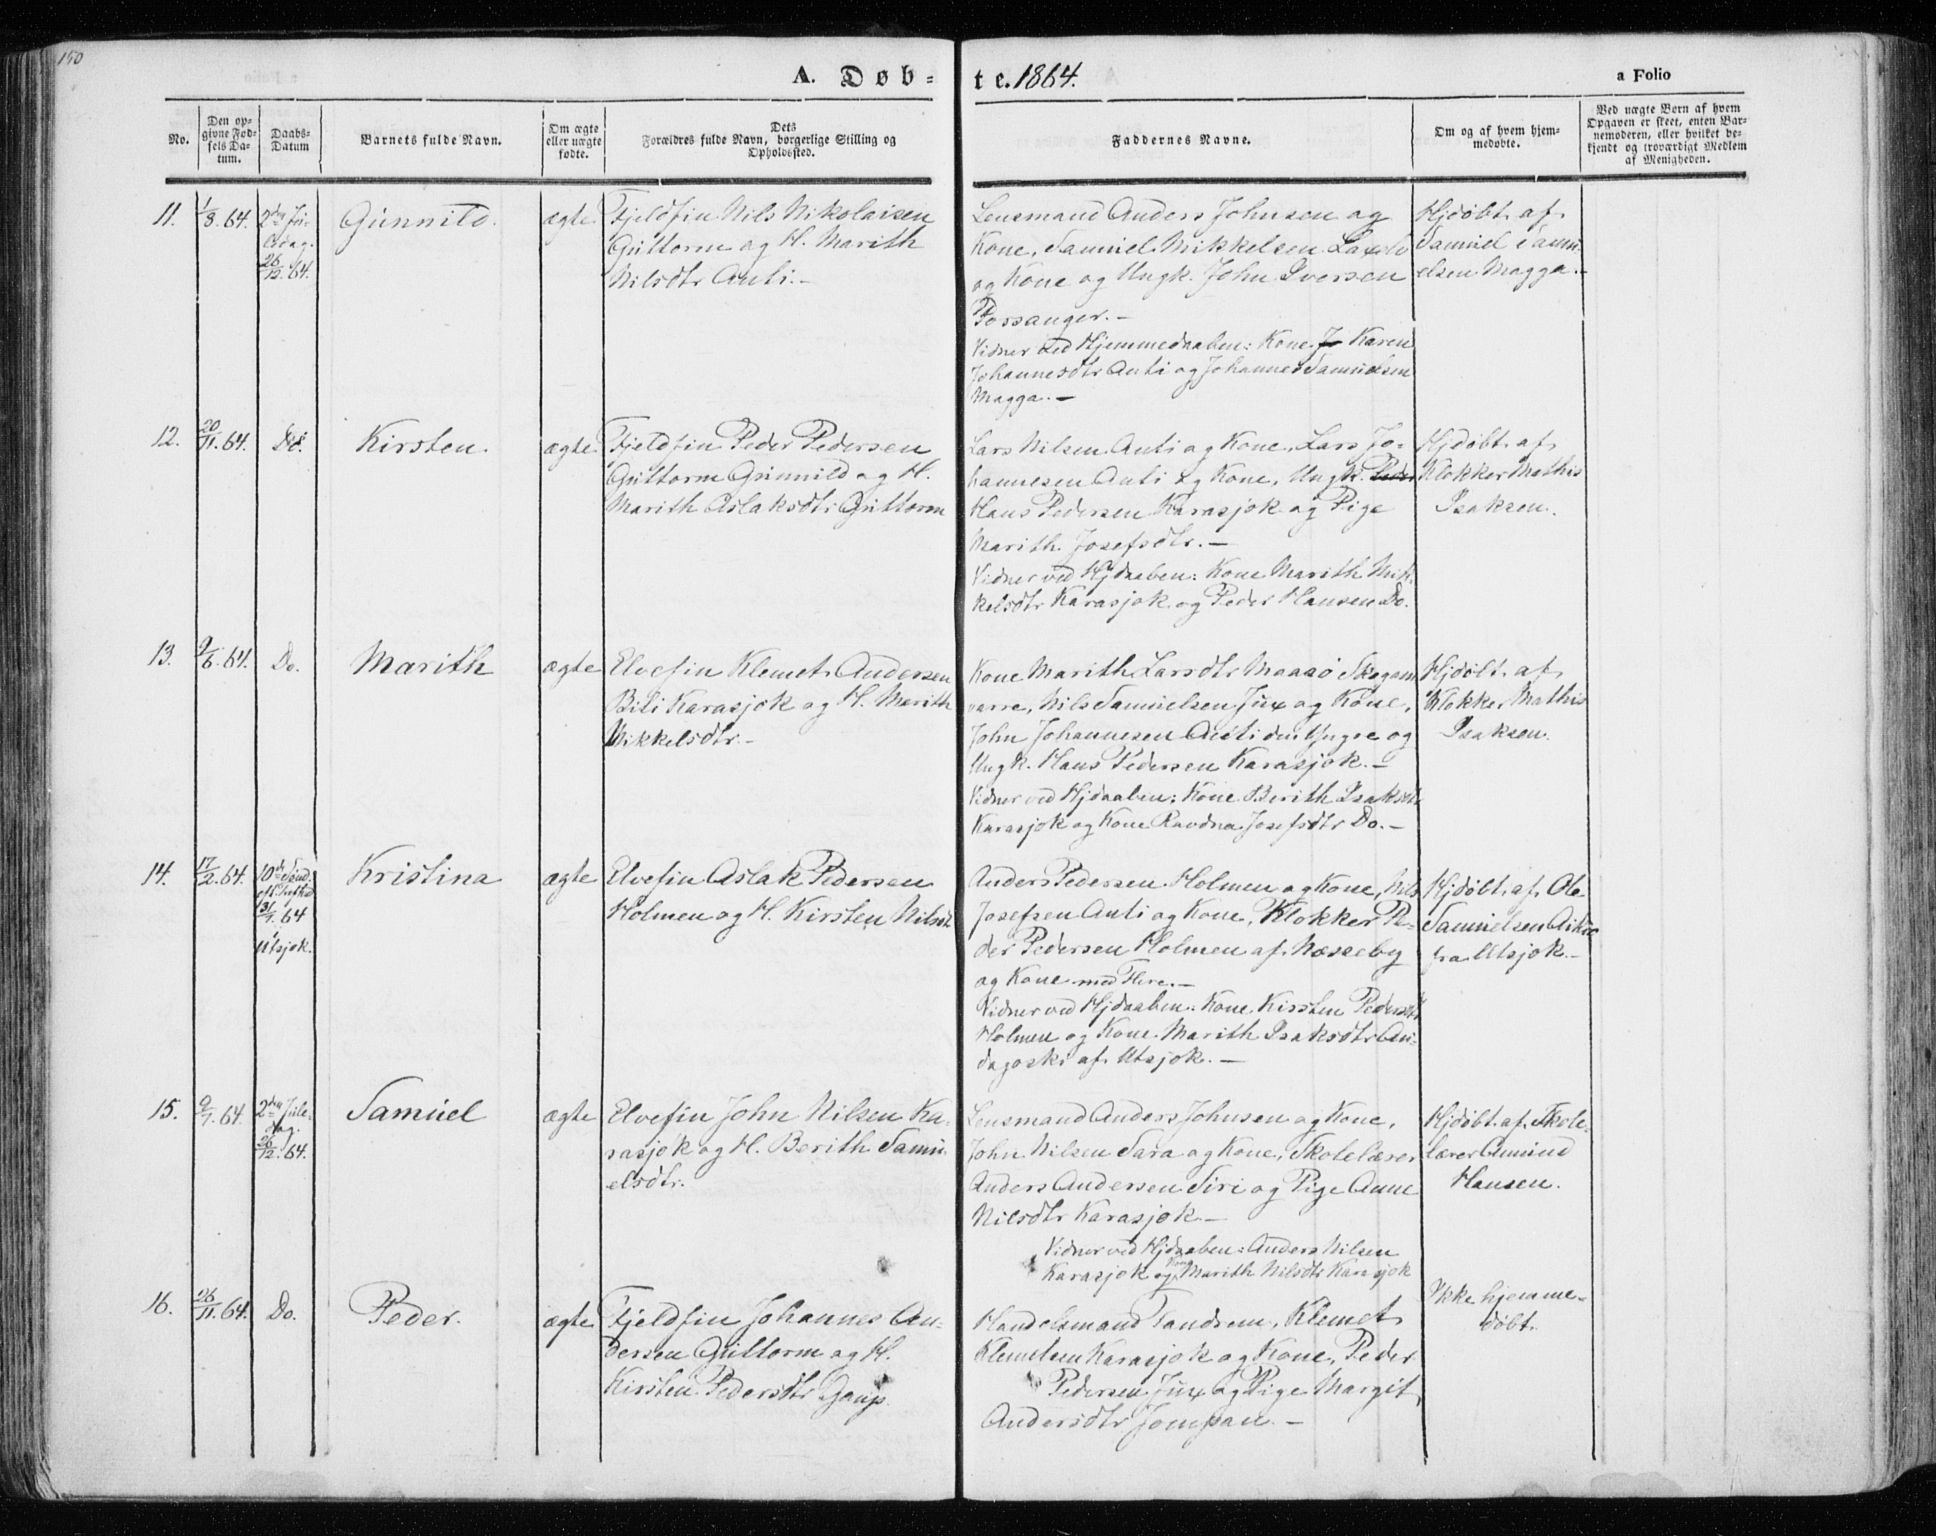 150
A. Døb-
te. 1864.
a Folio
No.
Den op-
givne Fød-
sels Da-
tum.
Daabs-
Datum
Barnets fulde Navn.
Om ægte
eller uægte
fødte.
Dets
Forældres fulde Navn, borgerlige Stilling og
Opholdssted.
Faddernes Navne.
Om og af hvem hjem-
medøbte.
Ved uægte Børn af hvem
Opgaven er skeet, enten Bar-
nemoderen, eller hvilket be-
kjendt og troværdigt Medlem
af Menigheden.
11.
1/8. 64.
2den Ju-
ledag.
26/12. 64.
Gunnild.
ægte.
Fjeldfin Nils Nikolaisen
Guttorm og H. Marith
Nilsdtr Anti.-
Lensmand Anders Johnsen og
Kone, Samuel Mikkelsen
og Kone og Ungk. John Iversen
Porsanger.-
Vidner ved Hjemmedaaben: Kone Karen
Johannesdtr Anti og Johannes Samuelsen
Magga.-
Hjdøbt. af.
Samuel Samu-
elsen Magga.-
12.
20/11. 64.
Do.
Kirsten.
ægte.
Fjeldfin Peder Pedersen
Guttorm Gunnild og H.
Marith Aslaksdtr Guttorm
Lars Nilsen Anti og Kone, Lars Jo-
hannesen Anti og Kone, Ungk. Peder
Hans Pedersen Karasjok og Pige
Marith Josefsdtr.-
Vidner ved Hjdaaben: Kone Marith Mik-
kelsdtr Karasjok og Peder Hansen Do.
Hjdøbt. af.
Klokker Mathis
Isaksen.
13.
9/6. 64.
Do.
Marith
ægte
Elvefin Klemet Andersen
Biti Karasjok og H. Marith
Mikkelsdtr.-
Kone Marith Larsdtr Maasø Skogan
varre, Nils Samuelsen Jux og Kone,
John Johannesen Anti den Yngre og
Ungk. Hans Pedersen Karasjok.-
Vidner ved Hjdaaben: Kone Berith Isaksdtr
Karasjok og Kone Ravdna Josefsdtr Do.-
Hjdøbt. af
Klokker Mathis
Isaksen.
14.
17/2. 64.
10de Sønd.
31/7. 64
Utsjok.
Kristina
ægte
Elvefin Aslak Pedersen
Holmen og H. Kirsten Nilsdt
Anders Pedersen Holmen og Kone, Nils
Josefsen Anti og Kone, Klokker Pe-
der Pedersen Holmen af. Næsseby
og Kone med Flere.-
Vidner ved Hjdaaben: Kone Kirsten Pedersdtr
Holmen og Kone Marith Isaksdtr An-
dagoski af. Utsjok.-
Hjdøbt. af. Ole
Samuelsen
fra Utsjok.-
15.
9/7. 64
2den Jule-
dag.
26/12. 64.
Samuel
ægte
Elvefin John Nilsen Ka-
rasjok og H. Berith Samu-
elsdtr.
Lensmand Anders Johnsen og Kone,
John Nilsen Sara og Kone, Skolelærer
Anders Andersen Siri og Pige Anne
Nilsdtr Karasjok.-
Vidner ved Hjdaaben: Anders Nilsen
Karasjok og Kone Marith Nilsdtr Karasjok
Hjdøbt. af. Skole-
lærer Amund
Hansen.
16.
26/11. 64.
Do.
Peder.
ægte
Fjeldfin Johannes An-
dersen Guttorm og H.
Kirsten Pedersdtr Gaup.
Handelsmand Fandrem, Klemet
Klemetsen Karasjok og Kone, Peder
Pedersen Jux og Pige Margit
Andersdtr Jompan.-
Ikke hjemme-
døbt.